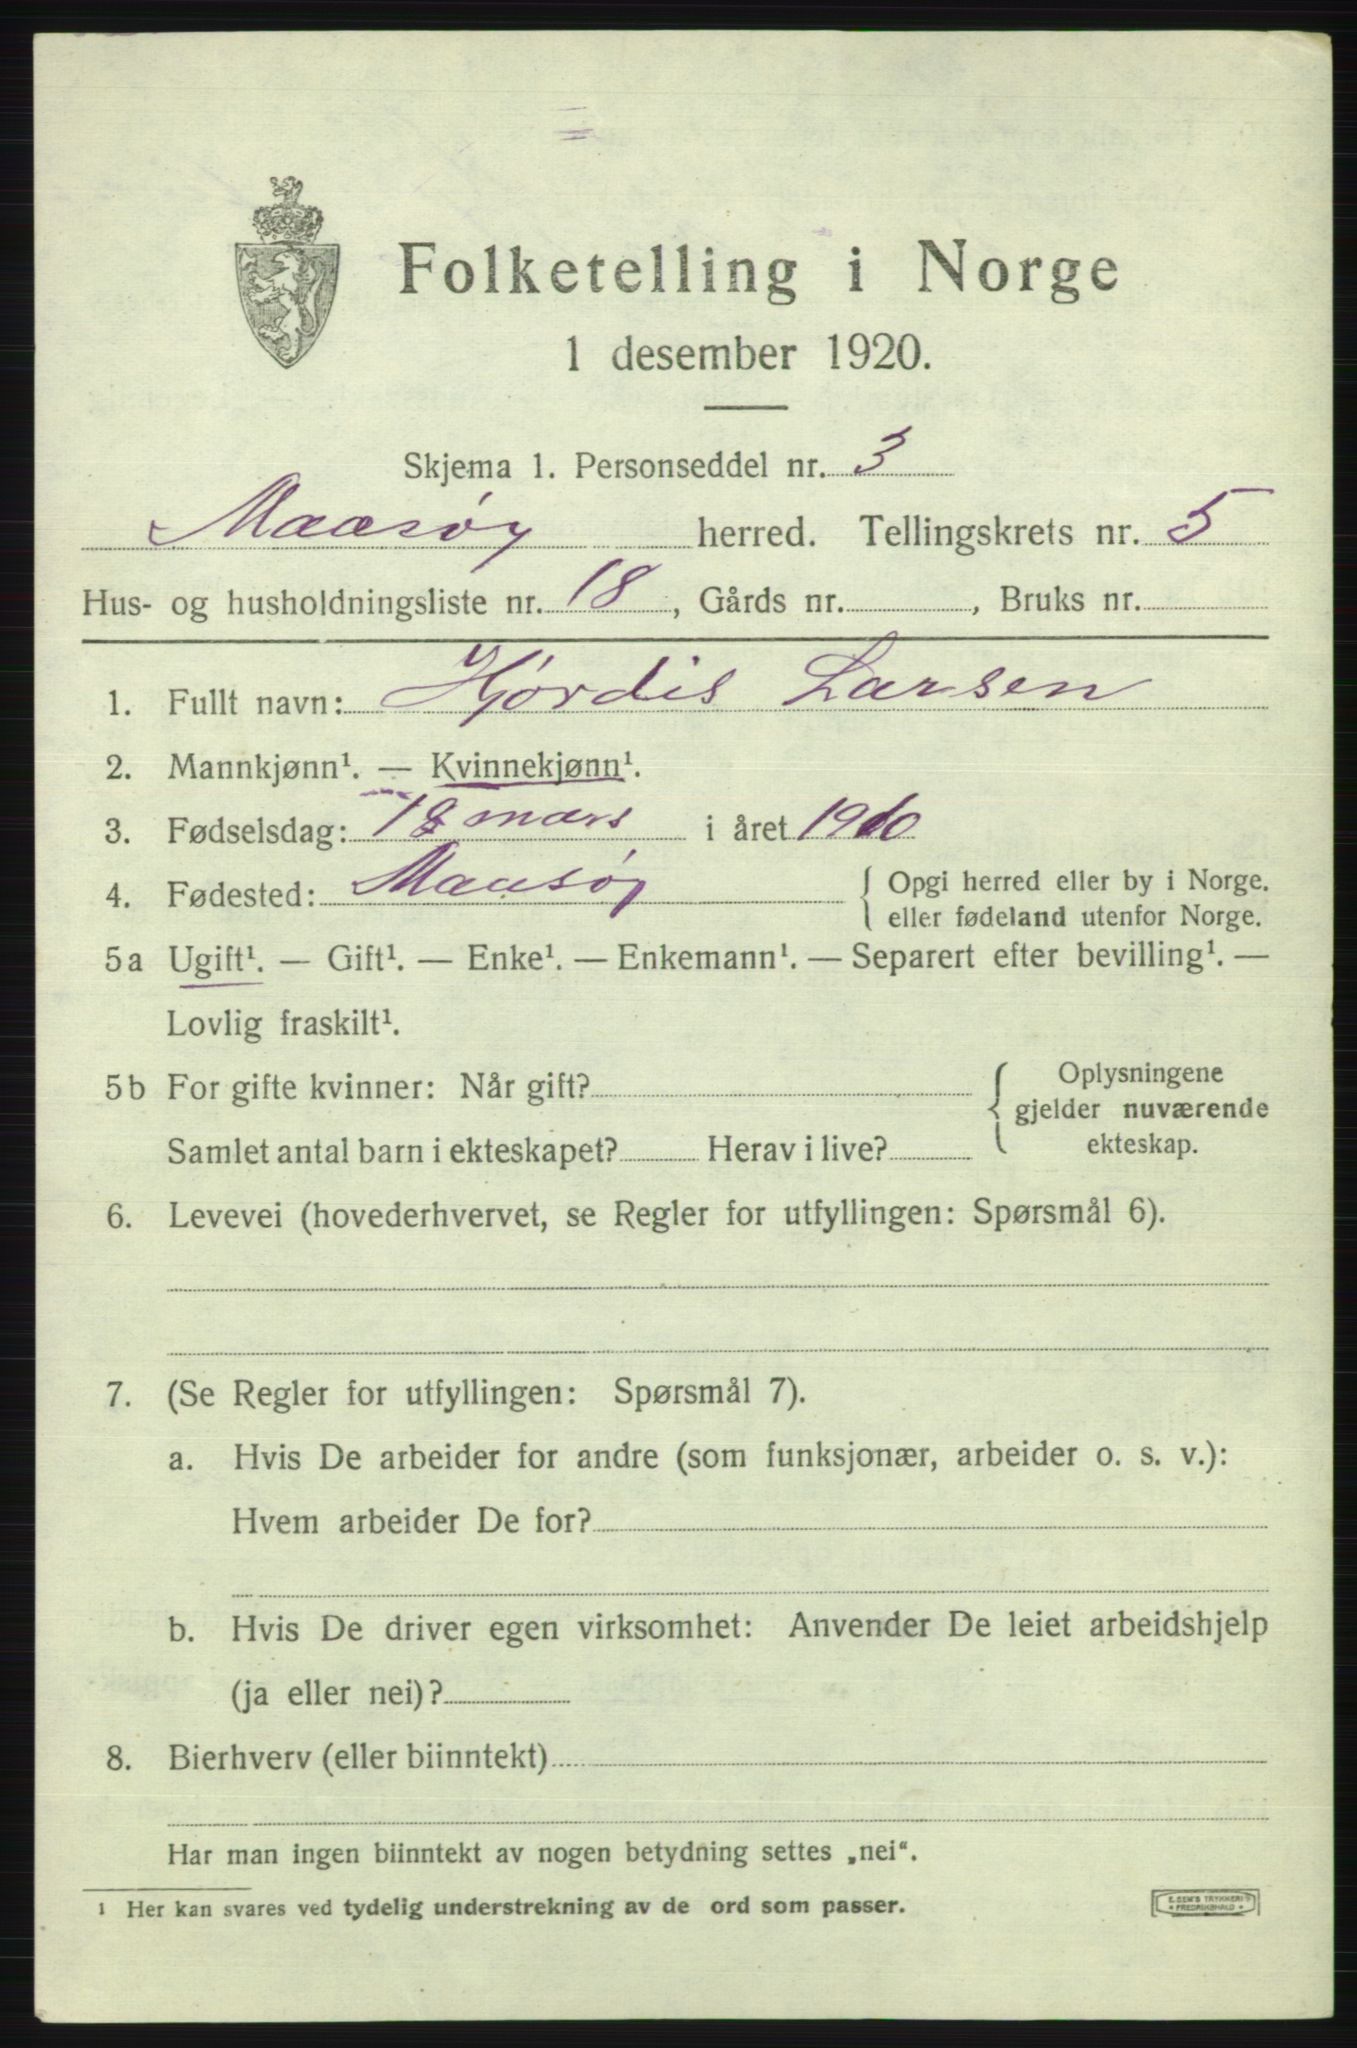 Folketelling i Norge
1 desember 1920.
Skjema 1. Personseddel nr. 3
Maasøy herred. Tellingskrets nr. 5
Hus- og husholdningsliste nr. 18, Gårds nr. , Bruks nr.
1. Fullt navn: Hjørdis Larsen
2. Mannkjønn¹. — Kvinnekjønn¹.
3. Fødselsdag: 18 mars i året 1910
4. Fødested: Maasøy { Opgi herred eller by i Norge.
eller fødeland utenfor Norge.
5a Ugift¹. — Gift¹. — Enke¹. — Enkemann¹. — Separert efter bevilling¹. —
Lovlig fraskilt¹.
5b For gifte kvinner: Når gift? { Oplysningene
gjelder nuværende
Samlet antal barn i ekteskapet? Herav i live? ekteskap.
6. Levevei (hovederhvervet, se Regler for utfyllingen: Spørsmål 6).
7. (Se Regler for utfyllingen: Spørsmål 7).
a. Hvis De arbeider for andre (som funksjonær, arbeider o. s. v.):
Hvem arbeider De for?
b. Hvis De driver egen virksomhet: Anvender De leiet arbeidshjelp
(ja eller nei)?
8. Bierhverv (eller biinntekt)
Har man ingen biinntekt av nogen betydning settes „nei“.
¹ Her kan svares ved tydelig understrekning av de ord som passer.
E. SEM'S TRYKKERI
FREDRIKSHALD